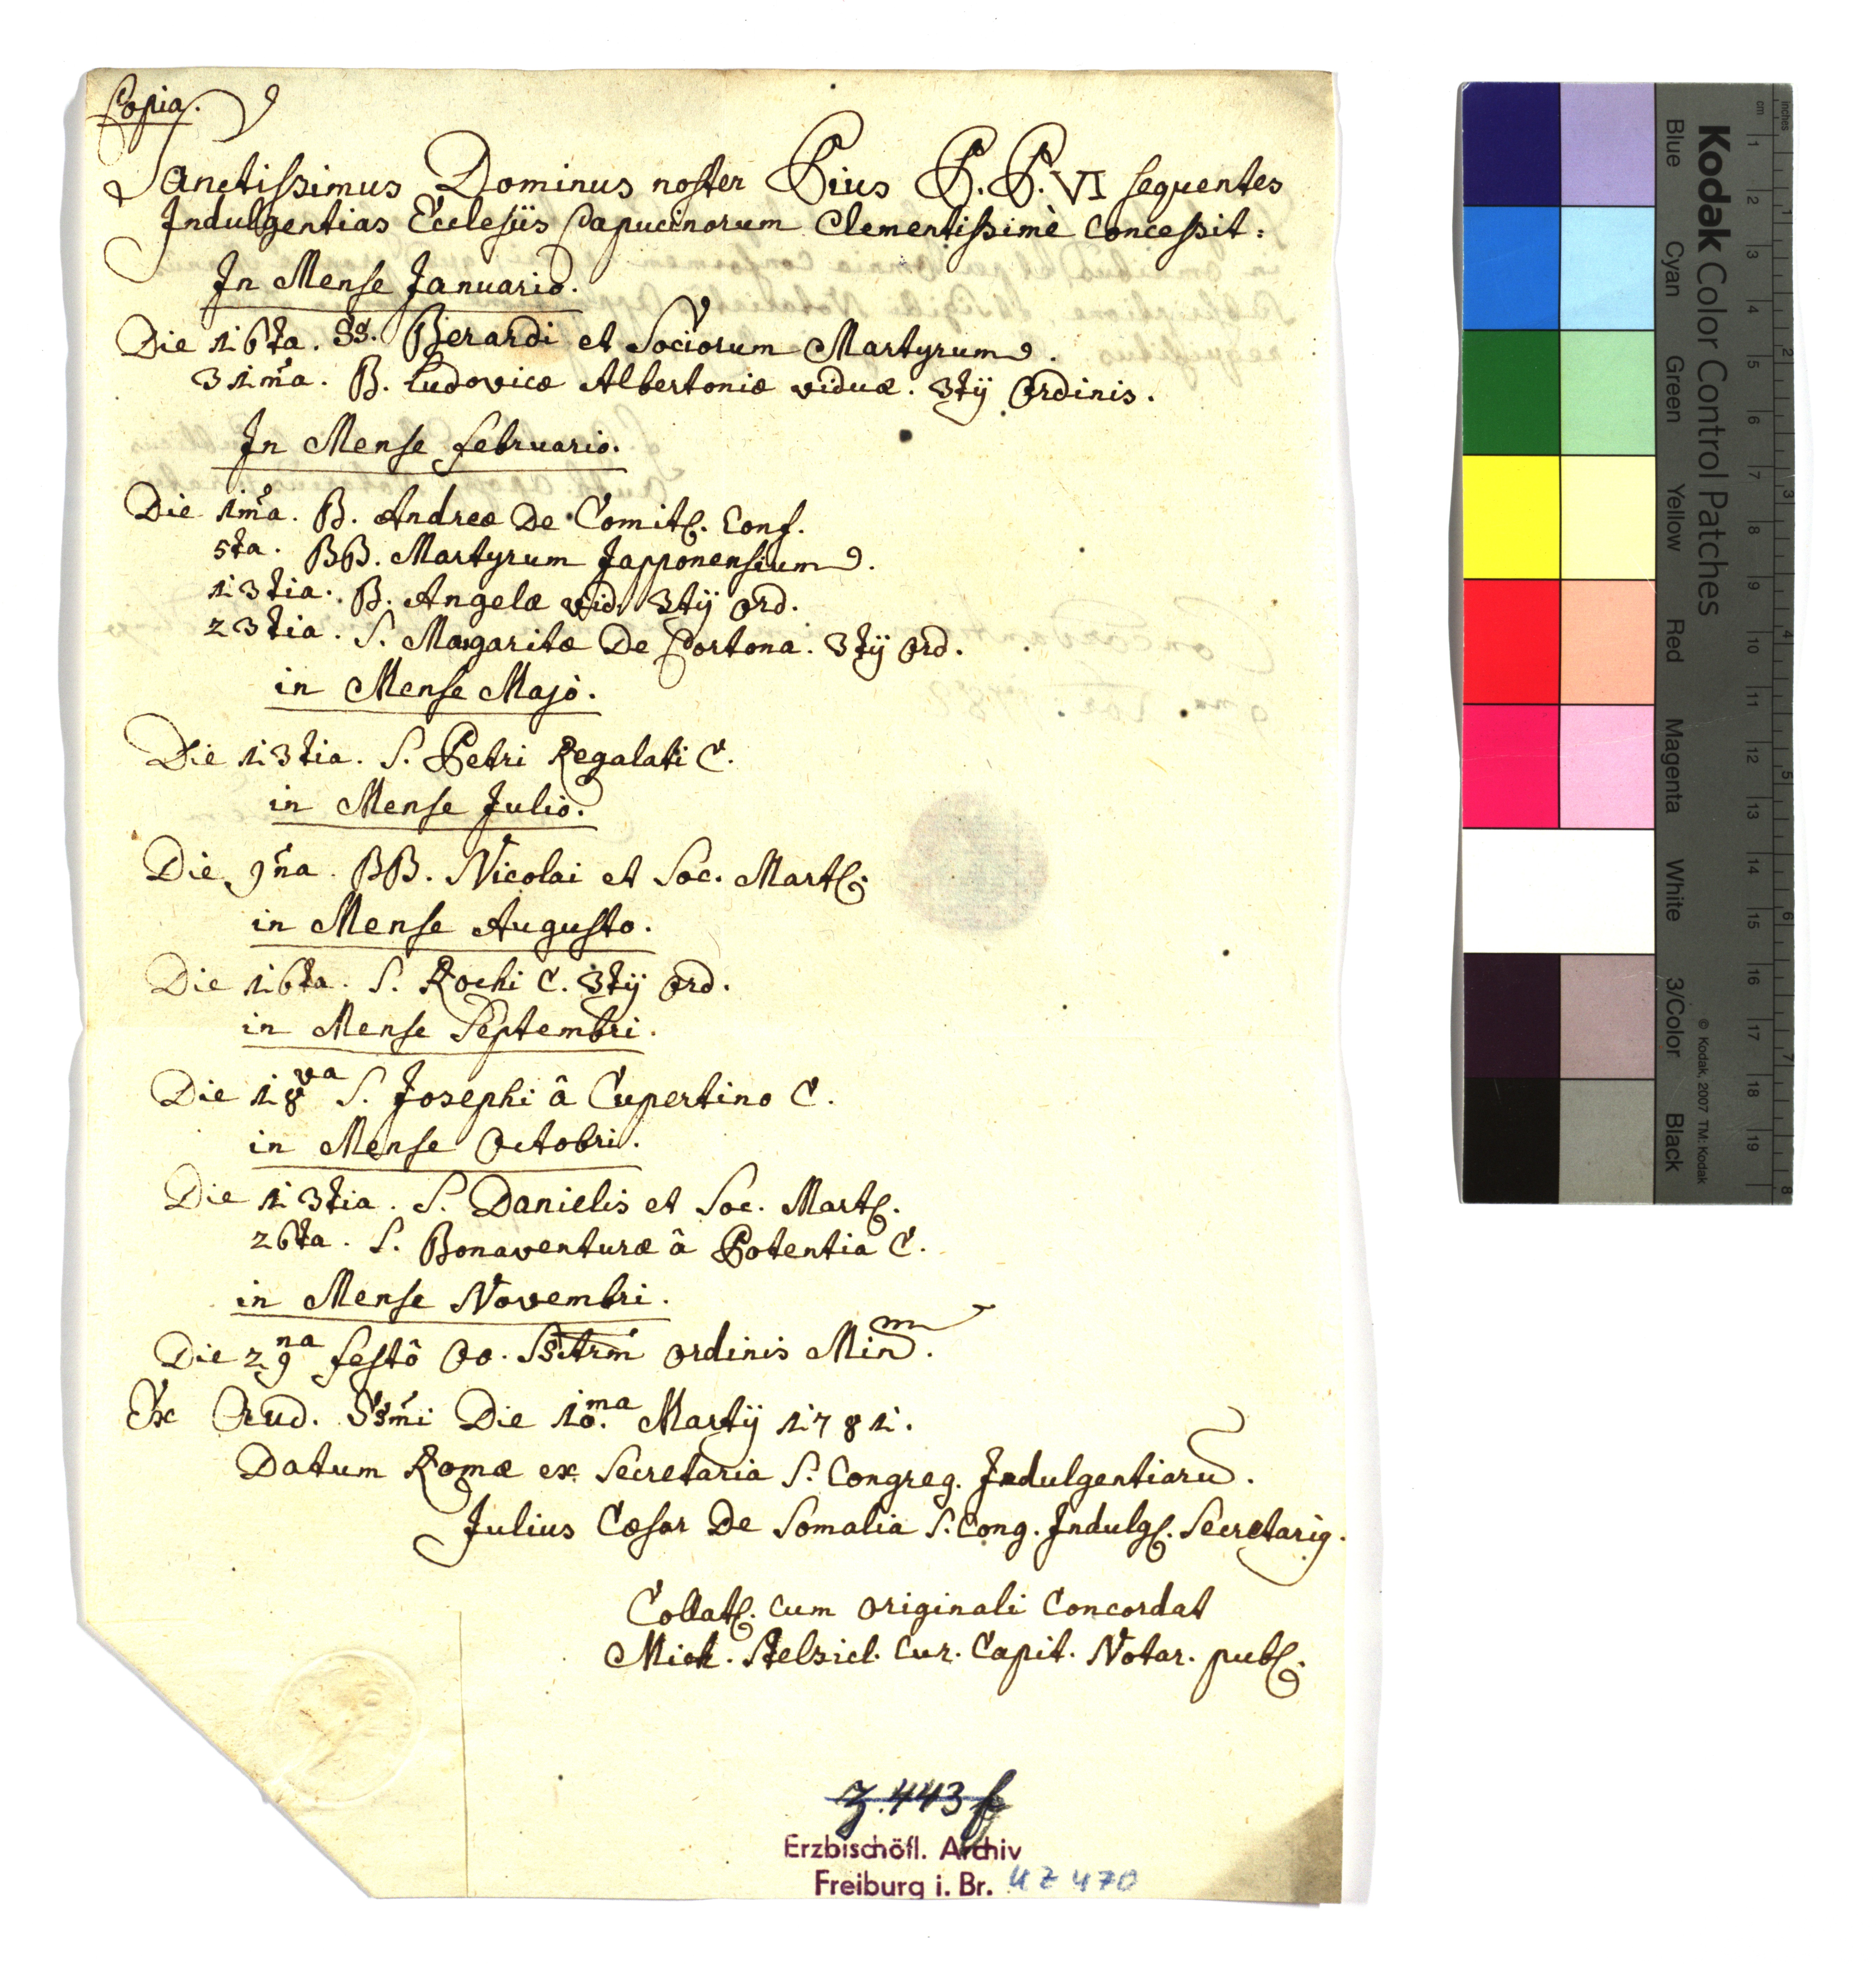 Copia.
Sanctissimus Dominus noster Pius P.P. VI sequentes
Indulgentias Ecclesiis Capucinorum Clementissimè Concessit:
In Mense Januario.
Die 16ta. SS. Berardi et Sociorum Martyrum.
31ma. B. Ludovicæ Albertoniæ viduæ. 3tij Ordinis.
In Mense februario.
Die 1ma. B. Andreæ De Comit. Conf.
5ta. BB. Martyrum Japponensium.
13tia. B. Angelæ vid. 3tij Ord.
23tia. S. Margaritæ De Cortona. 3tij Ord.
in Mense Majo.
Die 13tia. S. Petri Regalati C.
in Mense Julio.
Die 9na. BB. Nicolai et Soc. Mart.
in Mense Augusto.
Die 16ta. S. Rochi C. 3tij Ord.
in Mense Septembri.
Die 18va S. Josephi â Cupertino C.
in Mense Octobri.
Die 13tia. S. Danielis et Soc. Mart.
26ta. S. Bonaventuræ â Potentia C.
in Mense Novembri.
Die 29na festô OO. SStrm ordinis Minm.
Ex Aud. SSmi Die 10.ma Martij 1781.
Datum Romæ ex Secretaria S. Congreg. Indulgentiaru.
Julius Cæsar De Somalia S. Cong. Indulg. Secretarig.
Collat. cum originali Concordat
Mich. Cur. Capit. Notar. publ.
Z. 443 f
Erzbischöfl. Archiv
Freiburg i. Br. UZ 470
Kodak Color Control Patches
© Kodak, 2007 TM: Kodak
Blue Cyan Green Yellow Red Magenta White 3/Color Black
cm 1 2 3 4 5 6 7 8 9 10 11 12 13 14 15 16 17 18 19
inches 1 2 3 4 5 6 7 8